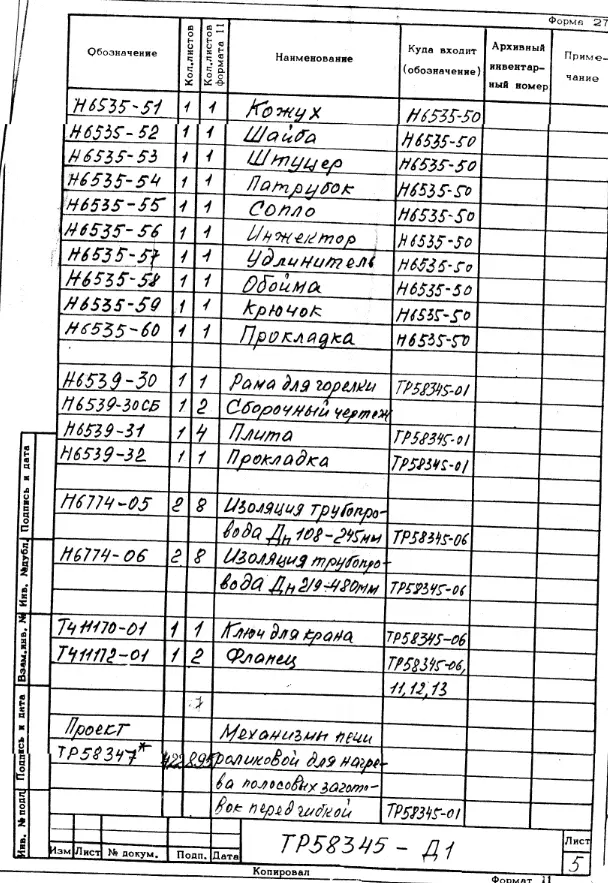 Форма 27
Обозначение Кол.листов Кол.листов формата 11 Наименование Куда входит (обозначение) Архивный инвентарный номер Примечание
Н6535-51 1 1 Кожух Н6535-50
Н6535-52 1 1 Шайба Н6535-50
Н6535-53 1 1 Штуцер Н6535-50
Н6535-54 1 1 Патрубок Н6535-50
Н6535-55 1 1 Сопло Н6535-50
Н6535-56 1 1 Инжектор Н6535-50
Н6535-57 1 1 Удлинитель Н6535-50
Н6535-58 1 1 Обойма Н6535-50
Н6535-59 1 1 Крючок Н6535-50
Н6535-60 1 1 Прокладка Н6535-50
Н6539-30 1 1 Рама для горелки ТР58345-01
Н6539-30СБ 1 2 Сборочный чертеж
Н6539-31 1 4 Плита ТР58345-01
Н6539-32 1 1 Прокладка ТР58345-01
Н6774-05 2 8 Изоляция трубопро-
вода Дн 108-245мм ТР58345-06
Н6774-06 2 8 Изоляция трубопро-
вода Дн 219-480мм ТР58345-06
Т411170-01 1 1 Ключ для крана ТР58345-06
Т411172-01 1 2 Фланец ТР58345-06,
11,12,13
Проект Механизмы печи
ТР58347* 422 895 роликовой для нагре-
ва полосовых загото-
вок перед гибкой ТР58345-01
Инв. № подл. Подпись и дата Взам.инв. № Инв. №дубл. Подпись и дата
Изм Лист № докум. Подп. Дата
ТР58345 - Д1
Лист
5
Копировал
Формат 11